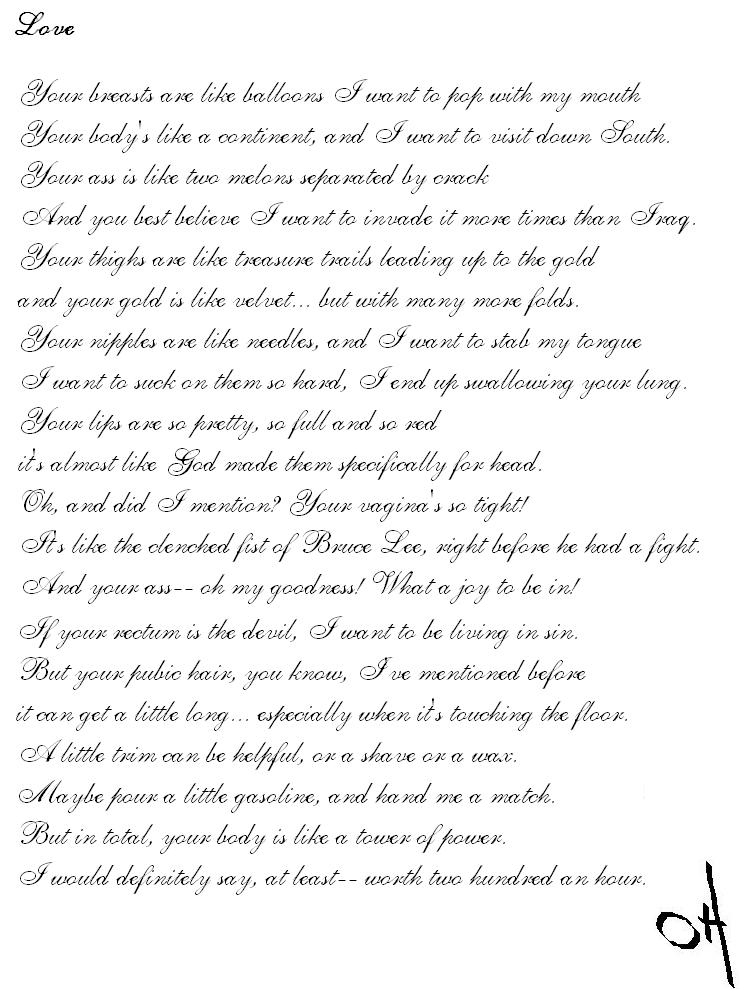 Love
Your breasts are like balloons I want to pop with my mouth
Your body's like a continent, and I want to visit down South.
Your ass is like two melons separated by crack
And you best believe I want to invade it more times than Iraq.
Your thighs are like treasure trails leading up to the gold
and your gold is like velvet... but with many more folds.
Your nipples are like needles, and I want to stab my tongue
I want to suck on them so hard, I end up swallowing your lung.
Your lips are so pretty, so full and so red
it's almost like God made them specifically for head.
Oh, and did I mention? Your vagina's so tight!
It's like the clenched fist of Bruce Lee, right before he had a fight.
And your ass-- oh my goodness! What a joy to be in!
If your rectum is the devil, I want to be living in sin.
But your pubic hair, you know, I've mentioned before
it can get a little long... especially when it's touching the floor.
A little trim can be helpful, or a shave or a wax.
Maybe pour a little gasoline, and hand me a match.
But in total, your body is like a tower of power.
I would definitely say, at least-- worth two hundred an hour.
OH